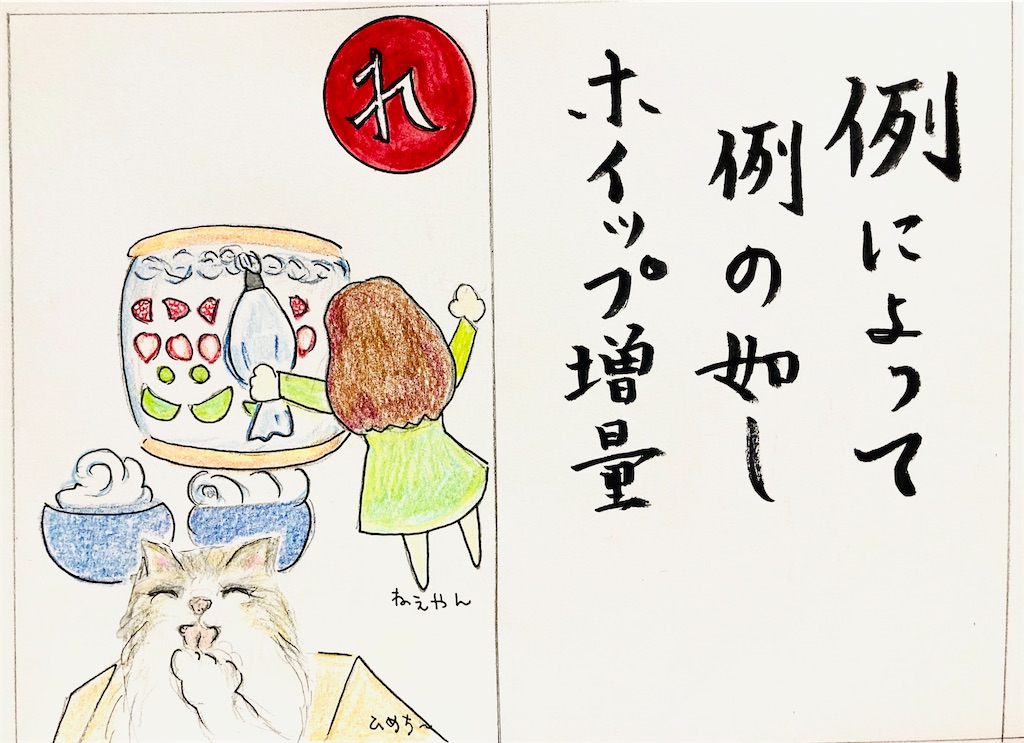 例によって
例の如し
ホイップ増量
れ
ねぇやん
ひめち〜